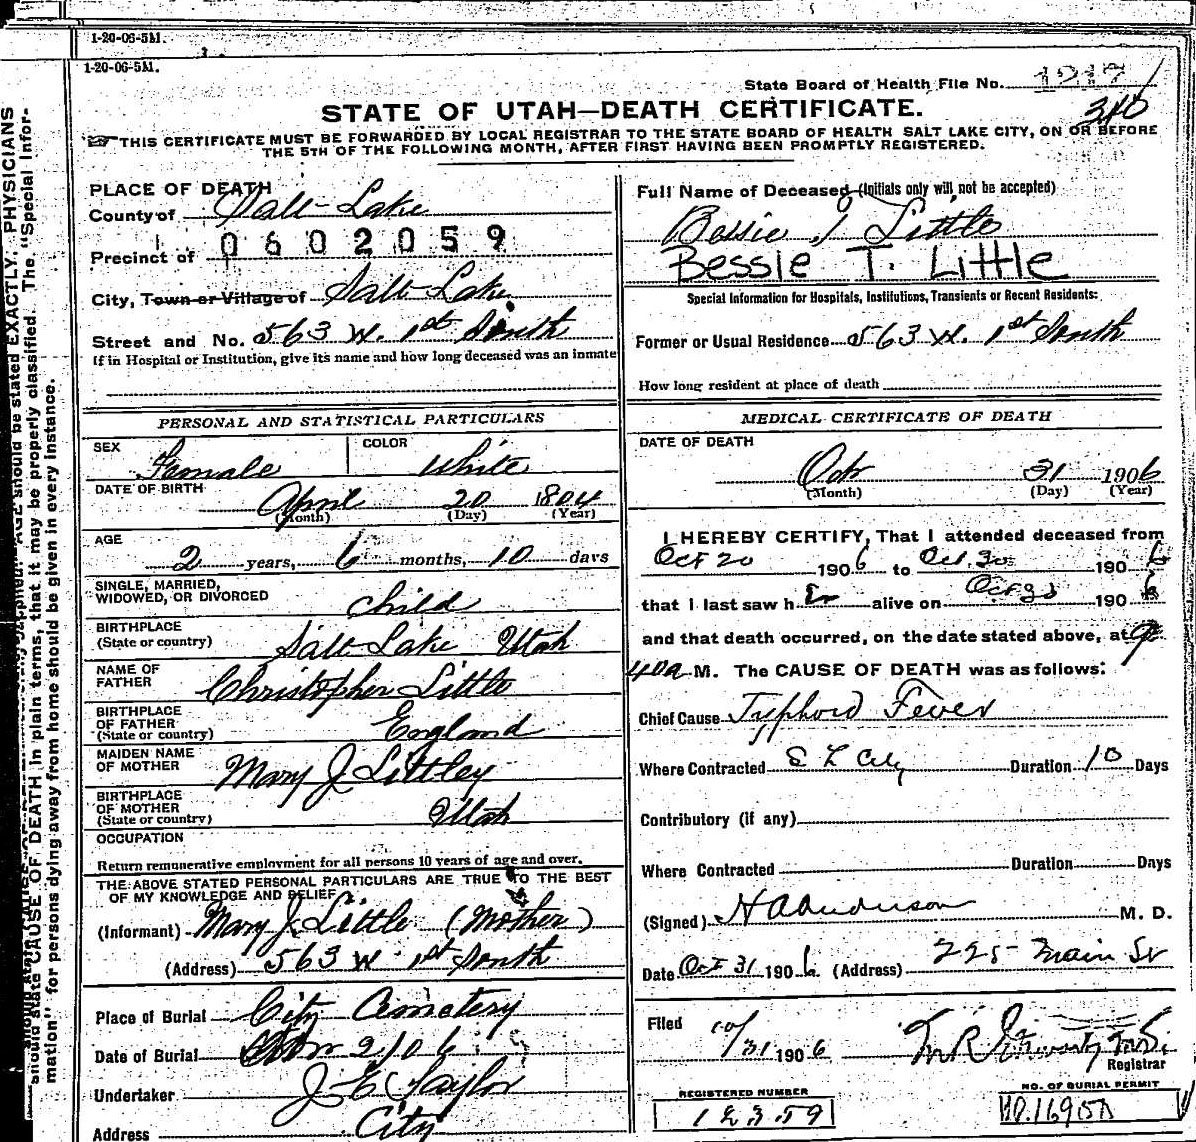 1-20-06-5M.
1-20-06-5M.
State Board of Health File No.
340
STATE OF UTAH—DEATH CERTIFICATE.
THIS CERTIFICATE MUST BE FORWARDED BY LOCAL REGISTRAR TO THE STATE BOARD OF HEALTH SALT LAKE CITY, ON OR BEFORE
THE 5TH OF THE FOLLOWING MONTH, AFTER FIRST HAVING BEEN PROMPTLY REGISTERED.
PLACE OF DEATH
County of Salt Lake
0602059
Precinct of
City, Town or Village of Salt Lake
Street and No. 563 W. 1st South
If in Hospital or Institution, give its name and how long deceased was an inmate
Full Name of Deceased (Initials only will not be accepted)
Bessie J Little
Bessie T. Little
Special Information for Hospitals, Institutions, Transients or Recent Residents:
Former or Usual Residence 563 W. 1st South
How long resident at place of death
PERSONAL AND STATISTICAL PARTICULARS
SEX Female
COLOR White
DATE OF BIRTH April 20 1804
(Month) (Day) (Year)
AGE
2 years, 6 months, 10 days
SINGLE, MARRIED,
WIDOWED, OR DIVORCED Child
BIRTHPLACE
(State or country) Salt Lake Utah
NAME OF
FATHER Christopher Little
BIRTHPLACE
OF FATHER
(State or country) England
MAIDEN NAME
OF MOTHER Mary J Littley
BIRTHPLACE
OF MOTHER
(State or country) Utah
OCCUPATION
Return remunerative employment for all persons 10 years of age and over.
THE ABOVE STATED PERSONAL PARTICULARS ARE TRUE TO THE BEST
OF MY KNOWLEDGE AND BELIEF
(Informant) Mary J. Little (Mother)
(Address) 563 W. 1st South
Place of Burial City Cemetery
Date of Burial Nov 2/06
Undertaker J E Taylor
Address City
MEDICAL CERTIFICATE OF DEATH
DATE OF DEATH
Oct 31 1906
(Month) (Day) (Year)
I HEREBY CERTIFY, That I attended deceased from
Oct 20 1906 to Oct 30 1906
that I last saw her alive on Oct 30 1906
and that death occurred, on the date stated above, at 9
40a M. The CAUSE OF DEATH was as follows:
Chief Cause Typhoid Fever
Where Contracted S L City Duration 10 Days
Contributory (if any)
Where Contracted Duration Days
(Signed) H A Anderson M. D.
Date Oct 31 1906 (Address) 225 Main St
Filed 10/31 1906
Registrar
REGISTERED NUMBER
12359
NO. OF BURIAL PERMIT
should state CAUSE OF DEATH in plain terms, that it may be properly classified. The "Special Infor-
mation" for persons dying away from home should be given in every instance.